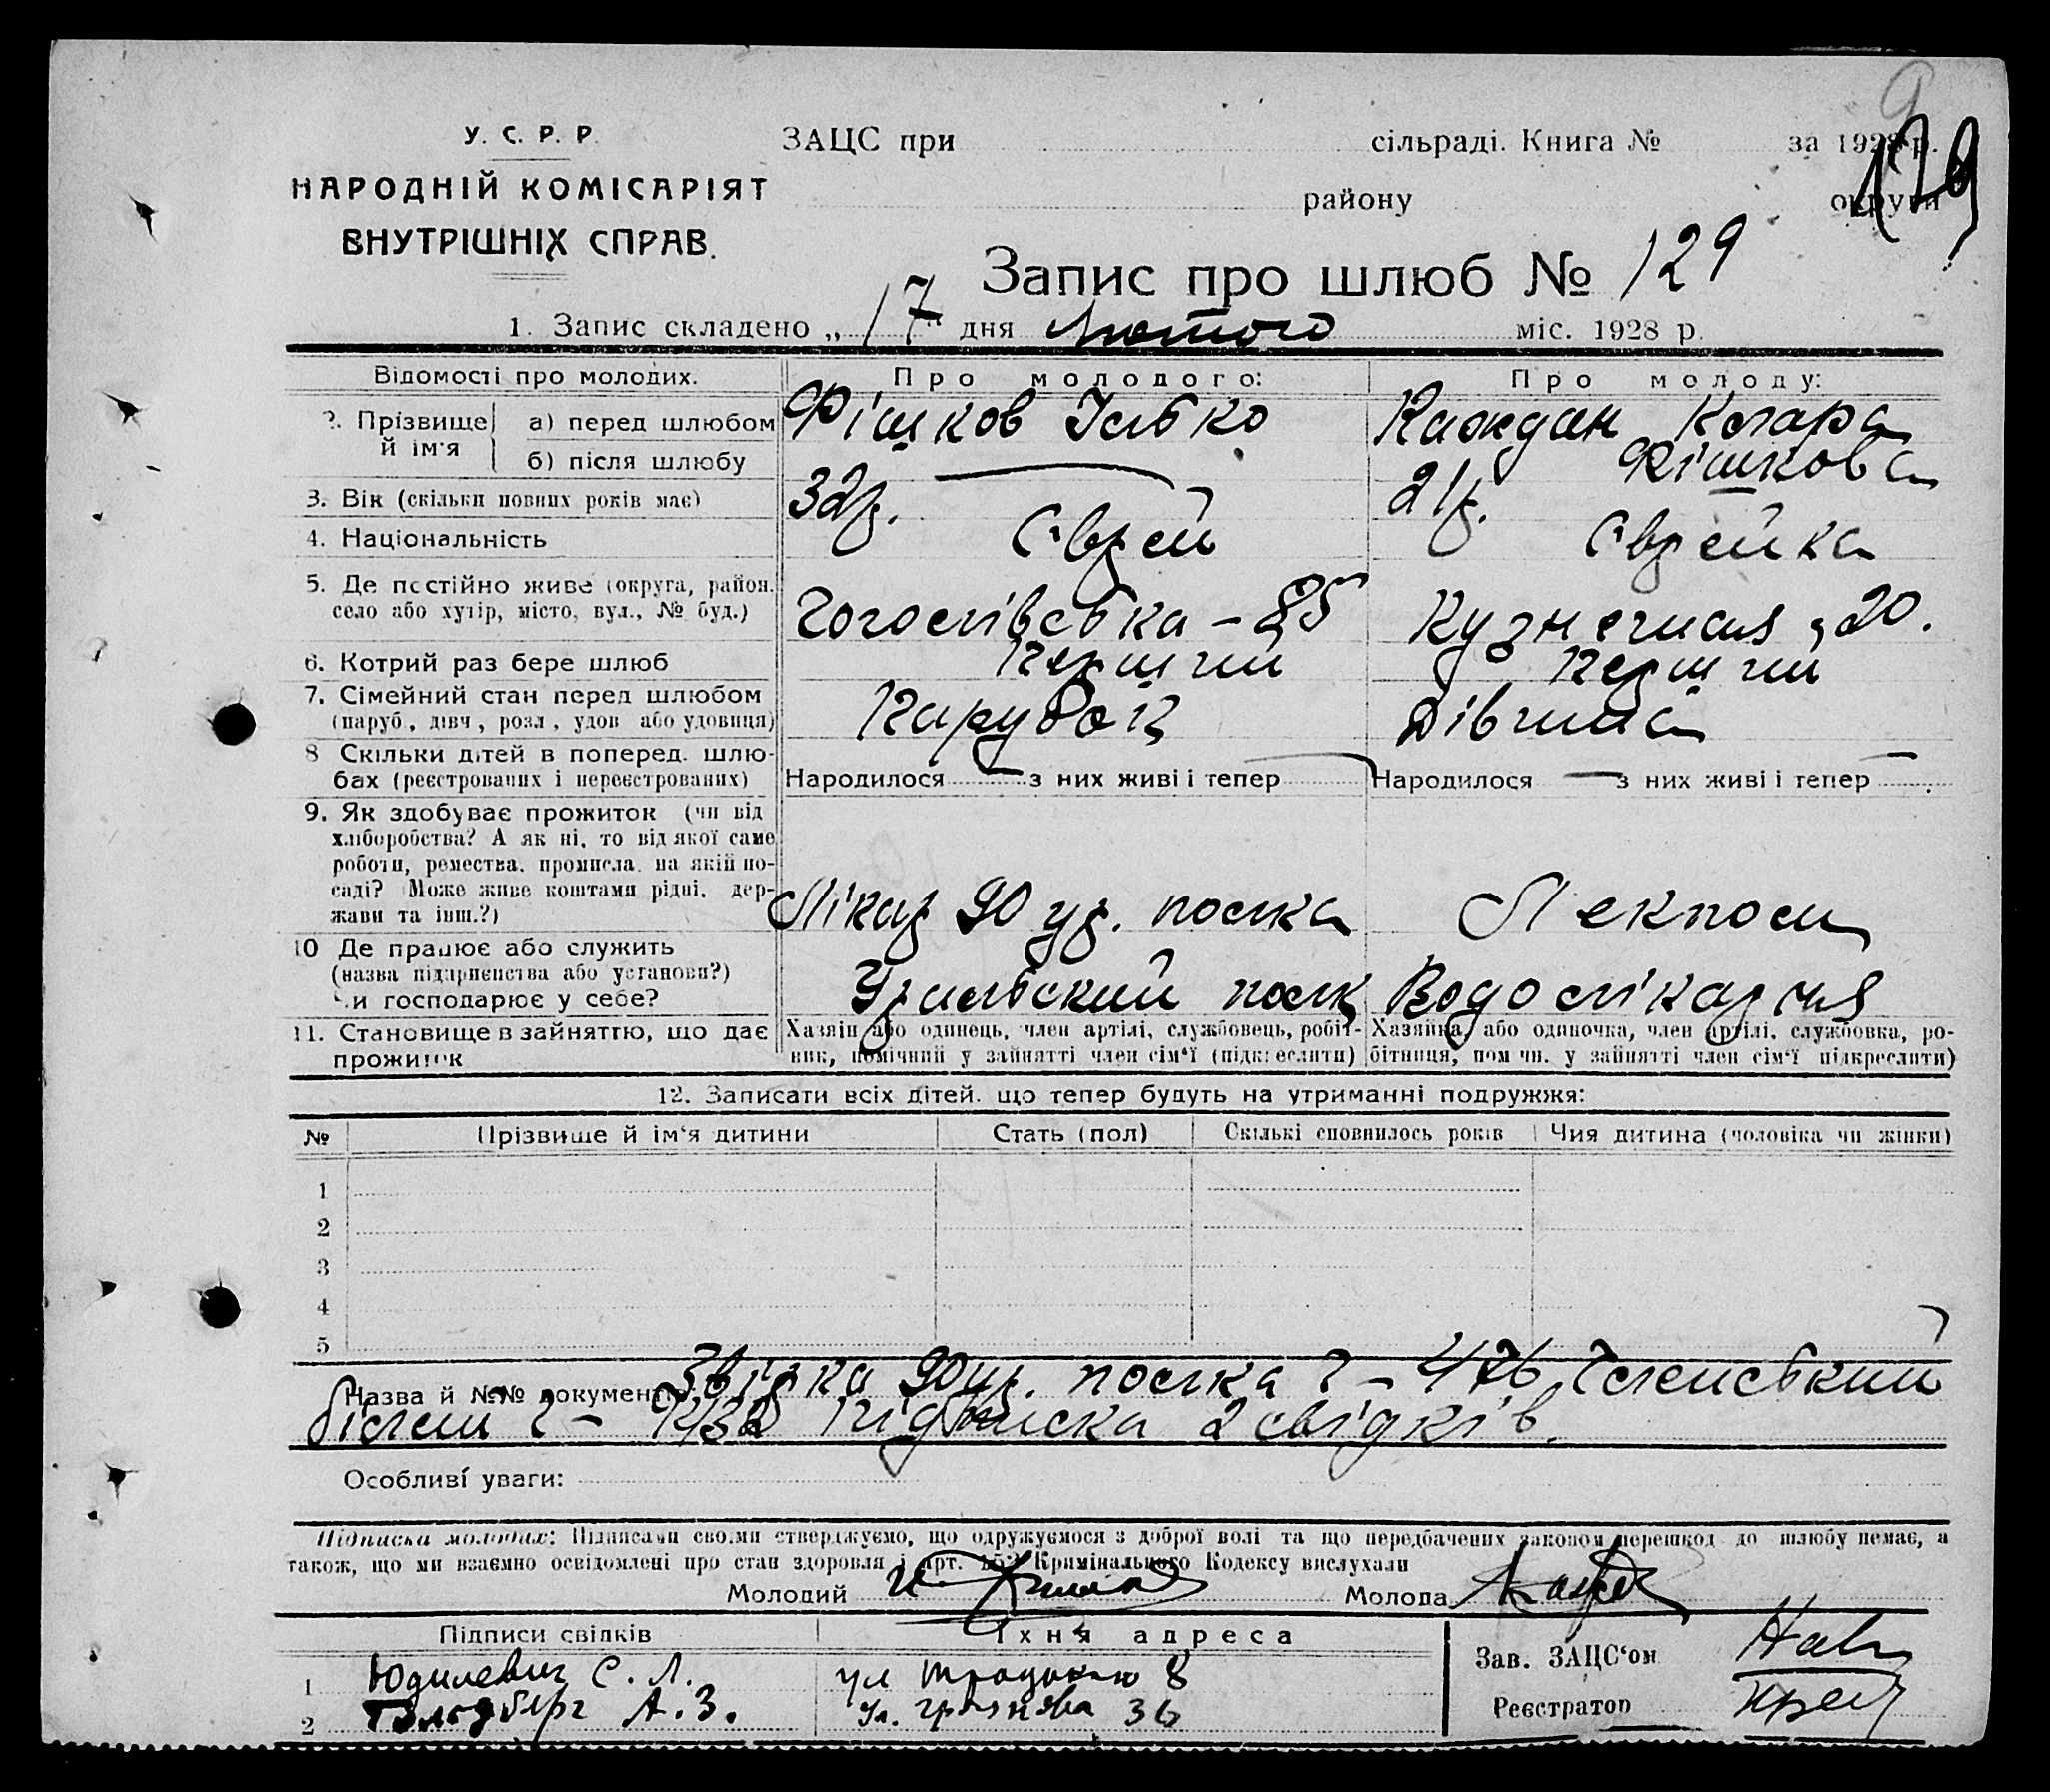 9
129
У. С. Р. Р.
НАРОДНІЙ КОМІСАРІЯТ
ВНУТРІШНІХ СПРАВ.
ЗАЦС при сільраді. Книга № за 1928 р.
району округи
Запис про шлюб № 129
1. Запис складено „17" дня Лютого міс. 1928 р.
Відомості про молодих. Про молодого: Про молоду:
2. Прізвище й ім'я
а) перед шлюбом Фішков Ісько Каждан Клара
б) після шлюбу — Фішкова
3. Вік (скільки повних років має) 32р. 21р.
4. Національність Єврей Єврейка
5. Де постійно живе (округа, район,
село або хутір, місто, вул., № буд.) Гоголівська - 85 Кузнечная, 20.
6. Котрий раз бере шлюб Перший Перший
7. Сімейний стан перед шлюбом
(паруб., дівч., розл., удов або удовиця) Парубок Дівчина
8 Скільки дітей в поперед. шлю-
бах (реєстрованих і нереєстрованих) Народилося — з них живі і тепер — Народилося — з них живі і тепер —
9. Як здобуває прожиток (чи від
хліборобства? А як ні, то від якої саме
роботи, ремества, промисла, на якій по-
саді? Може живе коштами рідні, дер-
жави та інш.?) Лікар 90 ур. полка Лекпом
10 Де працює або служить
(назва підприємства або установи?)
Чи господарює у себе? Уральский полк Водолікарня
11. Становище в зайняттю, що дає
прожиток
Хазяін або одинець, член артілі, службовець, робіт-
ник, помічний у зайнятті член сім'ї (підкреслити)
Хазяйка, або одиночка, член артілі, службовка, ро-
бітниця, помічн. у зайнятті член сім'ї підкреслити)
12. Записати всіх дітей, що тепер будуть на утриманні подружжя:
№ Прізвище й ім'я дитини Стать (пол) Скількі сповнилось років Чия дитина (чоловіка чи жінки)
1
2
3
4
5
Назва й №№ документів: 90 ур. полка 476 Членський
білєт підписка 2 свідків.
Особливі уваги:
Підписка молодих: Підписами своїми стверджуємо, що одружуємося з доброї волі та що передбачених законом перешкод до шлюбу немає, а
також, що ми взаємно освідомлені про стан здоровля і арт. 153 Кримінального Кодексу вислухали
Молодий Молода
Підписи свідків Їхня адреса
1 Юдилевич С. Л. ул Троцкого 8
2 Гольдберг А. З. Ул. 36
Зав. ЗАЦС'ом
Реєстратор